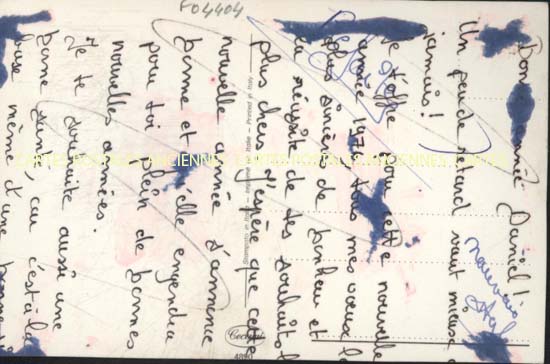 Bonne année Daniel!
Un peu de retard vaut mieux
jamais!
Je t'offre pour cette nouvelle
année 197 tous mes vœux le
plus sincère de bonheur et
de réussite de tes souhaits l
plus chers j'espère que cette
nouvelle année t'amène
bonne et qu'elle engendra
pour toi plein de bonnes
nouvelles années.
Je te souhaite aussi une
bonne santé, car c'est à la
base même d'une
mauvais
style
F04404
CARTES POSTALES ANCIENNES
CARTES POSTALES ANCIENNES
Stampato in Italia - Imprimé en Italie - Printed in Italy
Cecami